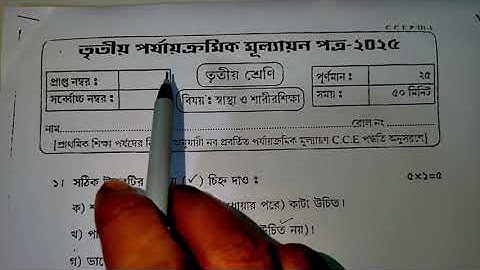 C C E
তৃতীয় পর্যায়ক্রমিক মূল্যায়ন পত্র-২০২৫
প্রাপ্ত নম্বর :
তৃতীয় শ্রেণি
পূর্ণমান : ২৫
সর্ব্বোচ্চ নম্বর :
বিষয় : স্বাস্থ্য ও শারীরশিক্ষা
সময় : ৫০ মিনিট
নাম রোল নং
[প্রাথমিক শিক্ষা পর্ষদের অনুযায়ী নব প্রবর্তিত পর্যায়ক্রমিক মূল্যায়ণ C C E পদ্ধতি অনুসরণে]
১। সঠিক (✓) চিহ্ন দাও : ৫×১=৫
ক) পরে) কাটা উচিত।
খ) উচিত নয়)।
গ)